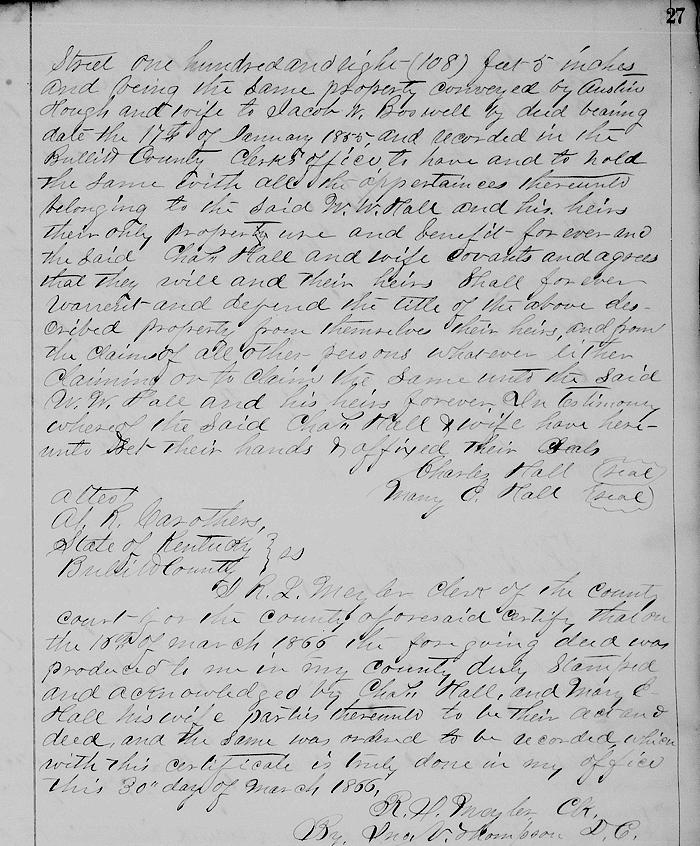 27
Street one hundred and eight (108) feet 5 inches
and being the same property conveyed by Austin
Hough and wife to Jacob W. Boswell by deed bearing
date the 17th of January 1855, and recorded in the
Bullitt County Clerk's office to have and to hold
the same with all the appertainces thereunto
belonging to the said W. W. Hall and his heirs
their only property use and benefit forever and
the said Chas. Hall and wife covants and agrees
that they will and their heirs shall forever
warrent and defend the title of the above des-
cribed property from themselves their heirs, and from
the claims of all other persons whatever either
claiming or to claim the same unto the said
W. W. Hall and his heirs forever. In testimony
whereof the said Chas. Hall & wife have here-
unto set their hands & affixed their seals
Charles Hall (seal)
Mary C. Hall (seal)
attest
R. Carothers,
State of Kentucky } ss
Bullitt County
I R. Meyler clerk of the county
court for the county aforesaid certify that on
the of march 1866 the foregoing deed was
produced to me in my county duly stamped
and acknowledged by Chas. Hall, and Mary C
Hall his wife parties thereunto to be their act and
deed, and the same was ordered to be recorded, which
with this certificate is truly done in my office
this 30" day of March 1866,
R. Meyler Clk.
By. Jno. V. Thompson D. C.